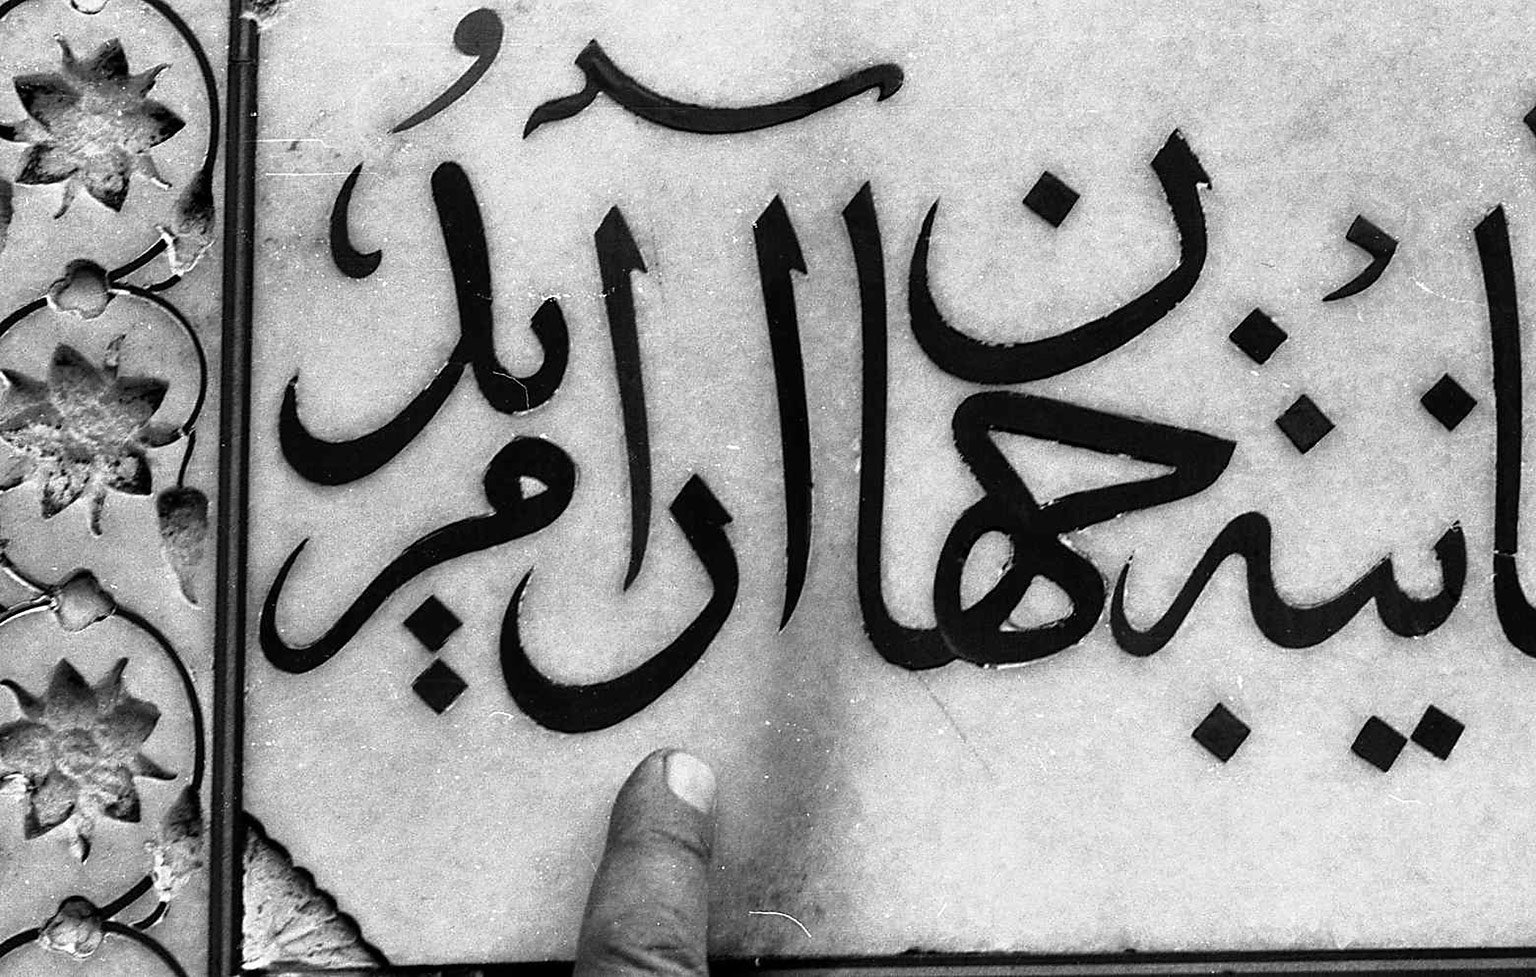 انیة جهان آرا مرید